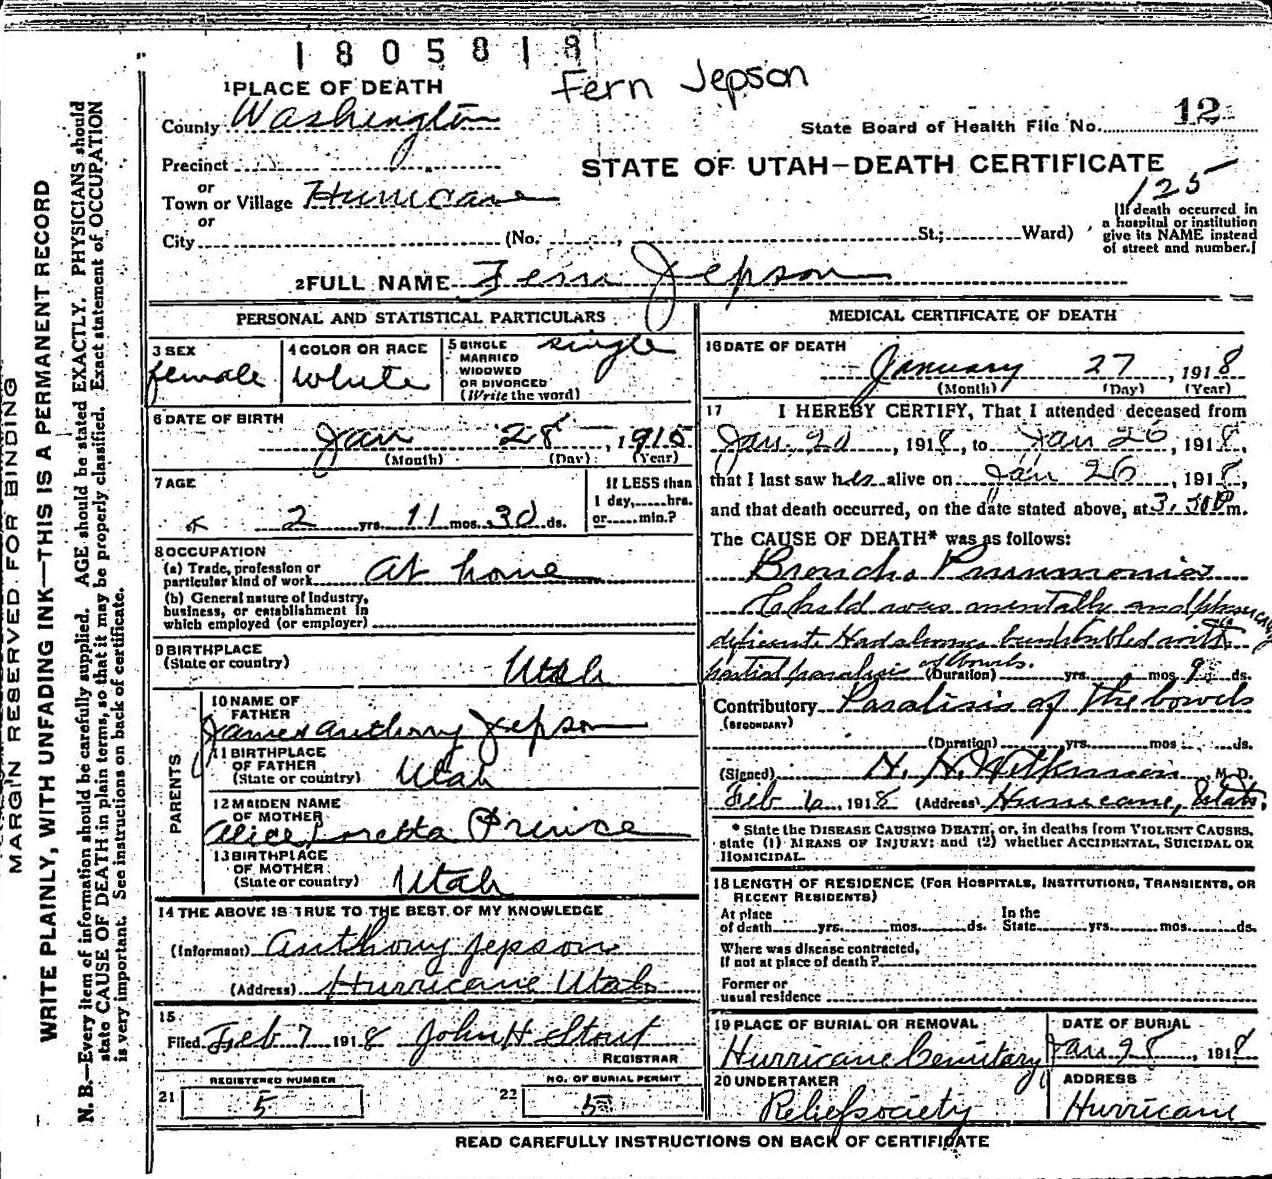 1805818
Fern Jepson
1 PLACE OF DEATH
County Washington
State Board of Health File No. 12
Precinct
STATE OF UTAH—DEATH CERTIFICATE
125
or
Town or Village Hurricane
or
City (No. St.; Ward)
[If death occurred in
a hospital or institution
give its NAME instead
of street and number.]
2 FULL NAME Fern Jepson
PERSONAL AND STATISTICAL PARTICULARS
3 SEX
female
4 COLOR OR RACE
White
5 SINGLE
MARRIED
WIDOWED
OR DIVORCED
(Write the word)
single
6 DATE OF BIRTH
Jan 28, 1915
(Month) (Day) (Year)
7 AGE
2 yrs. 11 mos. 30 ds.
If LESS than
1 day, hrs.
or min.?
8 OCCUPATION
(a) Trade, profession or
particular kind of work at home
(b) General nature of Industry,
business, or establishment in
which employed (or employer)
9 BIRTHPLACE
(State or country) Utah
PARENTS
10 NAME OF
FATHER
James Anthony Jepson
11 BIRTHPLACE
OF FATHER
(State or country) Utah
12 MAIDEN NAME
OF MOTHER
Alice Loretta Prince
13 BIRTHPLACE
OF MOTHER
(State or country) Utah
14 THE ABOVE IS TRUE TO THE BEST OF MY KNOWLEDGE
(Informant) Anthony Jepson
(Address) Hurricane Utah
15
Filed Feb 7 1918 John H Stout
REGISTRAR
REGISTERED NUMBER
21 5
NO. OF BURIAL PERMIT
22 5
MEDICAL CERTIFICATE OF DEATH
16 DATE OF DEATH
January 27, 1918
(Month) (Day) (Year)
17 I HEREBY CERTIFY, That I attended deceased from
Jan. 20, 1918, to Jan 26, 1918,
that I last saw her alive on Jan 26, 1918,
and that death occurred, on the date stated above, at 3. m.
The CAUSE OF DEATH* was as follows:
Broncho Pneumonia
Child was mentally and
deficient Had always been troubled with
partial paralisis of bowels. (Duration) yrs. mos. 9 ds.
Contributory Paralisis of the bowels
(SECONDARY)
(Duration) yrs. mos. ds.
(Signed) H. H. Wilkinson, M. D.
Feb 1918 (Address) Hurricane, Utah.
* State the DISEASE CAUSING DEATH, or, in deaths from VIOLENT CAUSES,
state (1) MEANS OF INJURY; and (2) whether ACCIDENTAL, SUICIDAL OR
HOMICIDAL.
18 LENGTH OF RESIDENCE (FOR HOSPITALS, INSTITUTIONS, TRANSIENTS, OR
RECENT RESIDENTS)
At place
of death yrs. mos. ds.
In the
State yrs. mos. ds.
Where was disease contracted,
If not at place of death?
Former or
usual residence
19 PLACE OF BURIAL OR REMOVAL
Hurricane Cemitary
DATE OF BURIAL
Jan 28, 1918
20 UNDERTAKER
Relief society
ADDRESS
Hurricane
READ CAREFULLY INSTRUCTIONS ON BACK OF CERTIFICATE
MARGIN RESERVED FOR BINDING
WRITE PLAINLY, WITH UNFADING INK—THIS IS A PERMANENT RECORD
N. B.—Every item of information should be carefully supplied. AGE should be stated EXACTLY. PHYSICIANS should
state CAUSE OF DEATH in plain terms, so that it may be properly classified. Exact statement of OCCUPATION
is very important. See instructions on back of certificate.